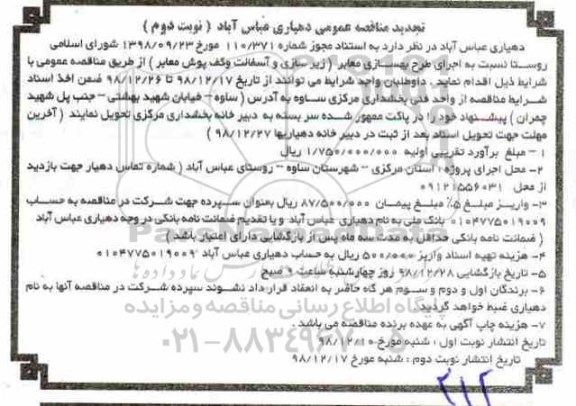 تجدید مناقصه عمومی دهیاری عباس آباد ( نوبت دوم )
دهیاری عباس آباد در نظر دارد به استناد مجوز شماره ۱۱۰/۳۷۱ مورخ ۱۳۹۸/۰۹/۲۳ شورای اسلامی
روستا نسبت به اجرای طرح بهسازی معابر ( زیر سازی و آسفالت وکف پوش معابر ) از طریق مناقصه عمومی با
شرایط ذیل اقدام نماید . داوطلبان واجد شرایط می توانند از تاریخ ۹۸/۱۲/۱۷ تا ۹۸/۱۲/۲۶ ضمن اخذ اسناد
شرایط مناقصه از واحد فنی بخشداری مرکزی ساوه به آدرس ( ساوه – خیابان شهید بهشتی – جنب پل شهید
چمران ) پیشنهاد خود را در پاکت ممهور شده سر بسته به دبیر خانه بخشداری مرکزی تحویل نمایند ( آخرین
مهلت جهت تحویل اسناد بعد از ثبت در دبیر خانه دهیاریها ۹۸/۱۲/۲۷ )
۱ – مبلغ برآورد تقریبی اولیه ۱/۷۵۰/۰۰۰/۰۰۰ ریال
۲- محل اجرای پروژه : استان مرکزی – شهرستان ساوه – روستای عباس آباد ( شماره تماس دهیار جهت بازدید
از محل ۰۹۱۲۱۵۵۶۰۳۱
۳- واریز مبلغ ۵٪ مبلغ پیمان ۸۷/۵۰۰/۰۰۰ ریال بعنوان سپرده جهت شرکت در مناقصه به حساب
۰۱۰۴۷۷۵۰۱۹۰۰۹ بانک ملی به نام دهیاری عباس آباد و یا تقدیم ضمانت نامه بانکی در وجه دهیاری عباس آباد
( ضمانت نامه بانکی حداقل به مدت سه ماه پس از بازگشایی دارای اعتبار باشد )
۴- هزینه تهیه اسناد واریز ۵۰۰/۰۰۰ ریال به حساب دهیاری عباس آباد ۰۱۰۴۷۷۵۰۱۹۰۰۹
۵- تاریخ بازگشایی ۹۸/۱۲/۲۸ روز چهارشنبه ساعت ۹ صبح
۶- برندگان اول و دوم و سوم هر گاه حاضر به انعقاد قرارداد نشوند سپرده شرکت در مناقصه آنها به نام
دهیاری ضبط خواهد گردید.
۷- هزینه چاپ آگهی به عهده برنده مناقصه می باشد .
تاریخ انتشار نوبت اول : شنبه مورخ ۹۸/۱۲/۱۰
تاریخ انتشار نوبت دوم : شنبه مورخ ۹۸/۱۲/۱۷
پایگاه اطلاع رسانی مناقصه و مزایده
۰۲۱-۸۸۳۴۹۶۷۰-۵
۲۱۲